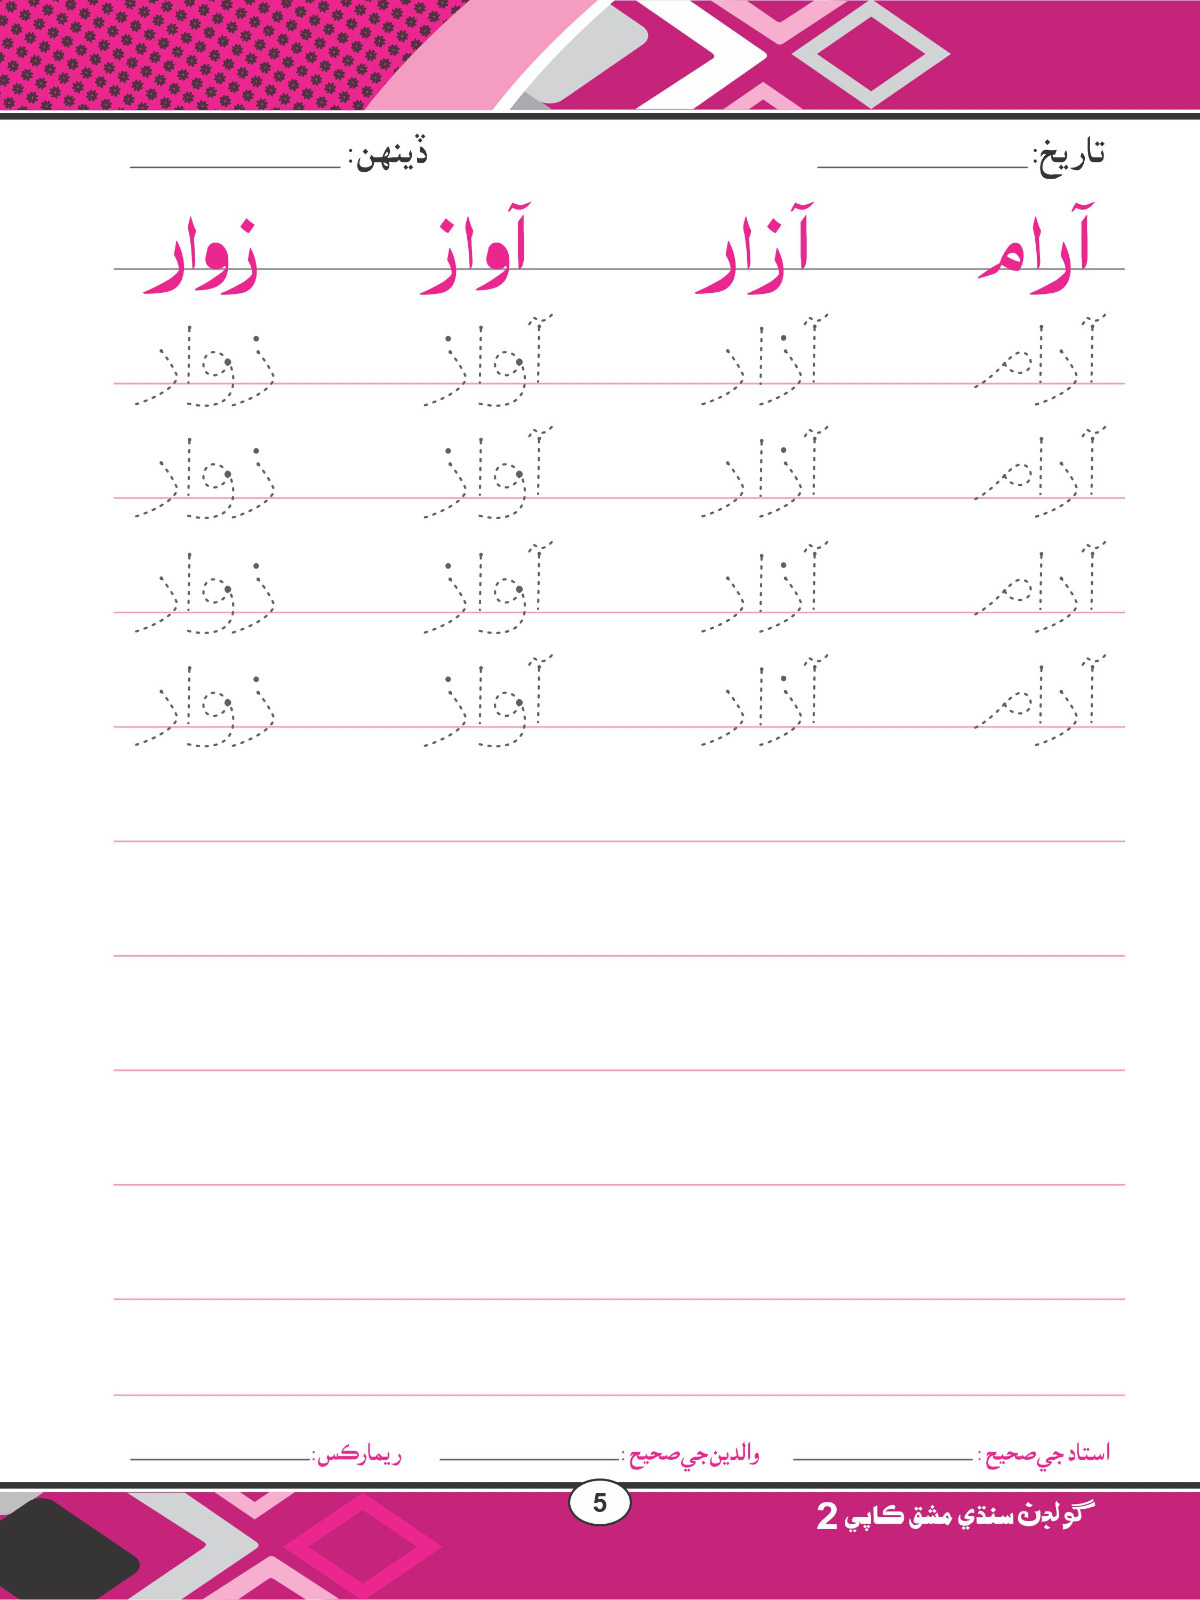 تاريخ: ڏينهن:
آرام آزار آواز زوار
آرام آزار آواز زوار
آرام آزار آواز زوار
آرام آزار آواز زوار
آرام آزار آواز زوار
استاد جي صحيح : والدين جي صحيح : ريمارڪس :
5
گولڊن سنڌي مشق ڪاپي 2